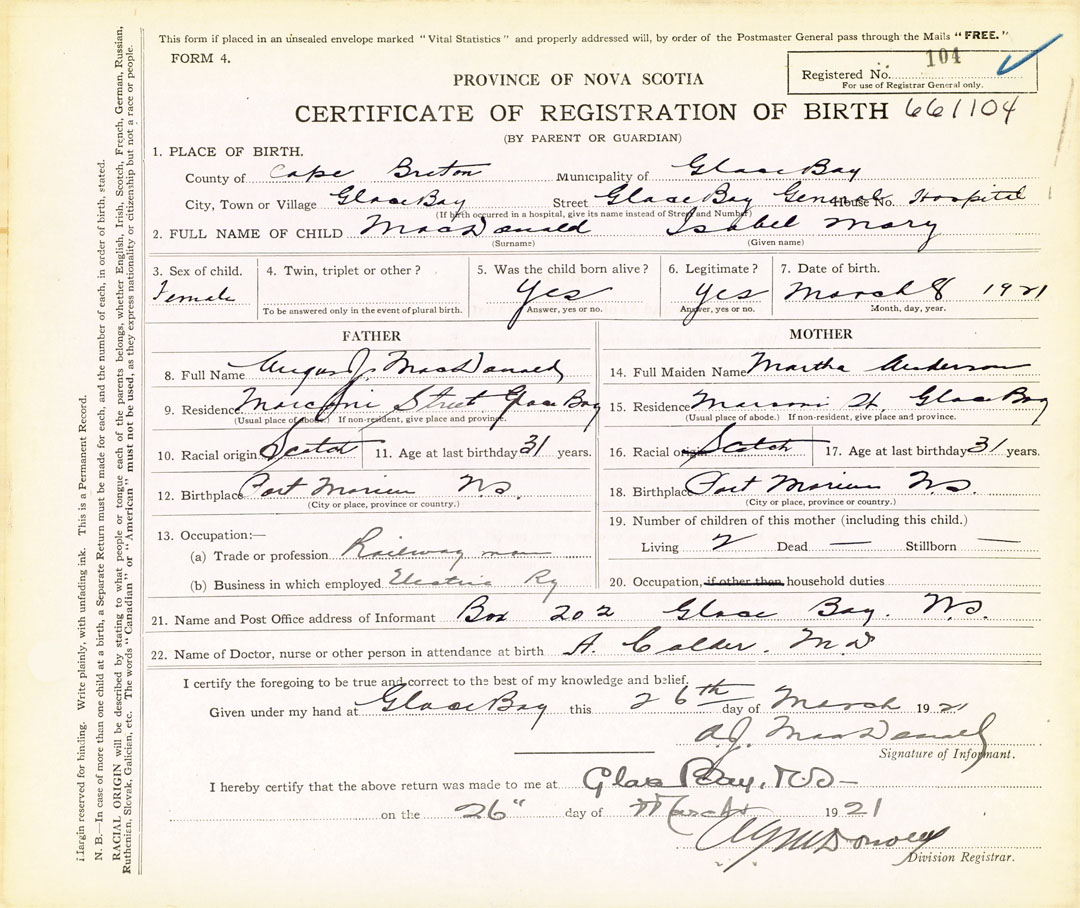 This form if placed in an unsealed envelope marked "Vital Statistics" and properly addressed will, by order of the Postmaster General pass through the Mails "FREE."
FORM 4.
Registered No. 104
For use of Registrar General only.
PROVINCE OF NOVA SCOTIA
CERTIFICATE OF REGISTRATION OF BIRTH 661104
(BY PARENT OR GUARDIAN)
1. PLACE OF BIRTH.
County of Cape Breton Municipality of Glace Bay
City, Town or Village Glace Bay Street Glace Bay General House No. Hospital
(If birth occurred in a hospital, give its name instead of Street and Number)
2. FULL NAME OF CHILD MacDonald Isabel Mary
(Surname) (Given name)
3. Sex of child. 4. Twin, triplet or other? 5. Was the child born alive? 6. Legitimate? 7. Date of birth.
Female Yes Yes March 8 1921
To be answered only in the event of plural birth. Answer, yes or no. Answer, yes or no. Month, day, year.
FATHER
8. Full Name Angus J. MacDonald
9. Residence Marconi Street Glace Bay
(Usual place of abode.) If non-resident, give place and province.
10. Racial origin Scotch 11. Age at last birthday 31 years.
12. Birthplace Port Morien N.S.
(City or place, province or country.)
13. Occupation:—
(a) Trade or profession Railway man
(b) Business in which employed Electric Ry
MOTHER
14. Full Maiden Name Martha Anderson
15. Residence Marconi St. Glace Bay
(Usual place of abode.) If non-resident, give place and province.
16. Racial origin Scotch 17. Age at last birthday 31 years.
18. Birthplace Port Morien N.S.
(City or place, province or country.)
19. Number of children of this mother (including this child.)
Living 2 Dead — Stillborn —
20. Occupation, if other than household duties
21. Name and Post Office address of Informant Box 202 Glace Bay. N.S.
22. Name of Doctor, nurse or other person in attendance at birth A. Calder. M.D
I certify the foregoing to be true and correct to the best of my knowledge and belief.
Given under my hand at Glace Bay this 26th day of March 1921
A.J. MacDonald
Signature of Informant.
I hereby certify that the above return was made to me at Glace Bay, N.S—
on the 26" day of March 1921
Division Registrar.
Margin reserved for binding. Write plainly, with unfading ink. This is a Permanent Record.
N. B.—In case of more than one child at a birth, a Separate Return must be made for each, and the number of each, in order of birth, stated.
RACIAL ORIGIN will be described by stating to what people or tongue each of the parents belongs, whether English, Irish, Scotch, French, German, Russian,
Ruthenian, Slovak, Galician, etc. The words "Canadian" or "American" must not be used, as they express nationality or citizenship but not a race or people.